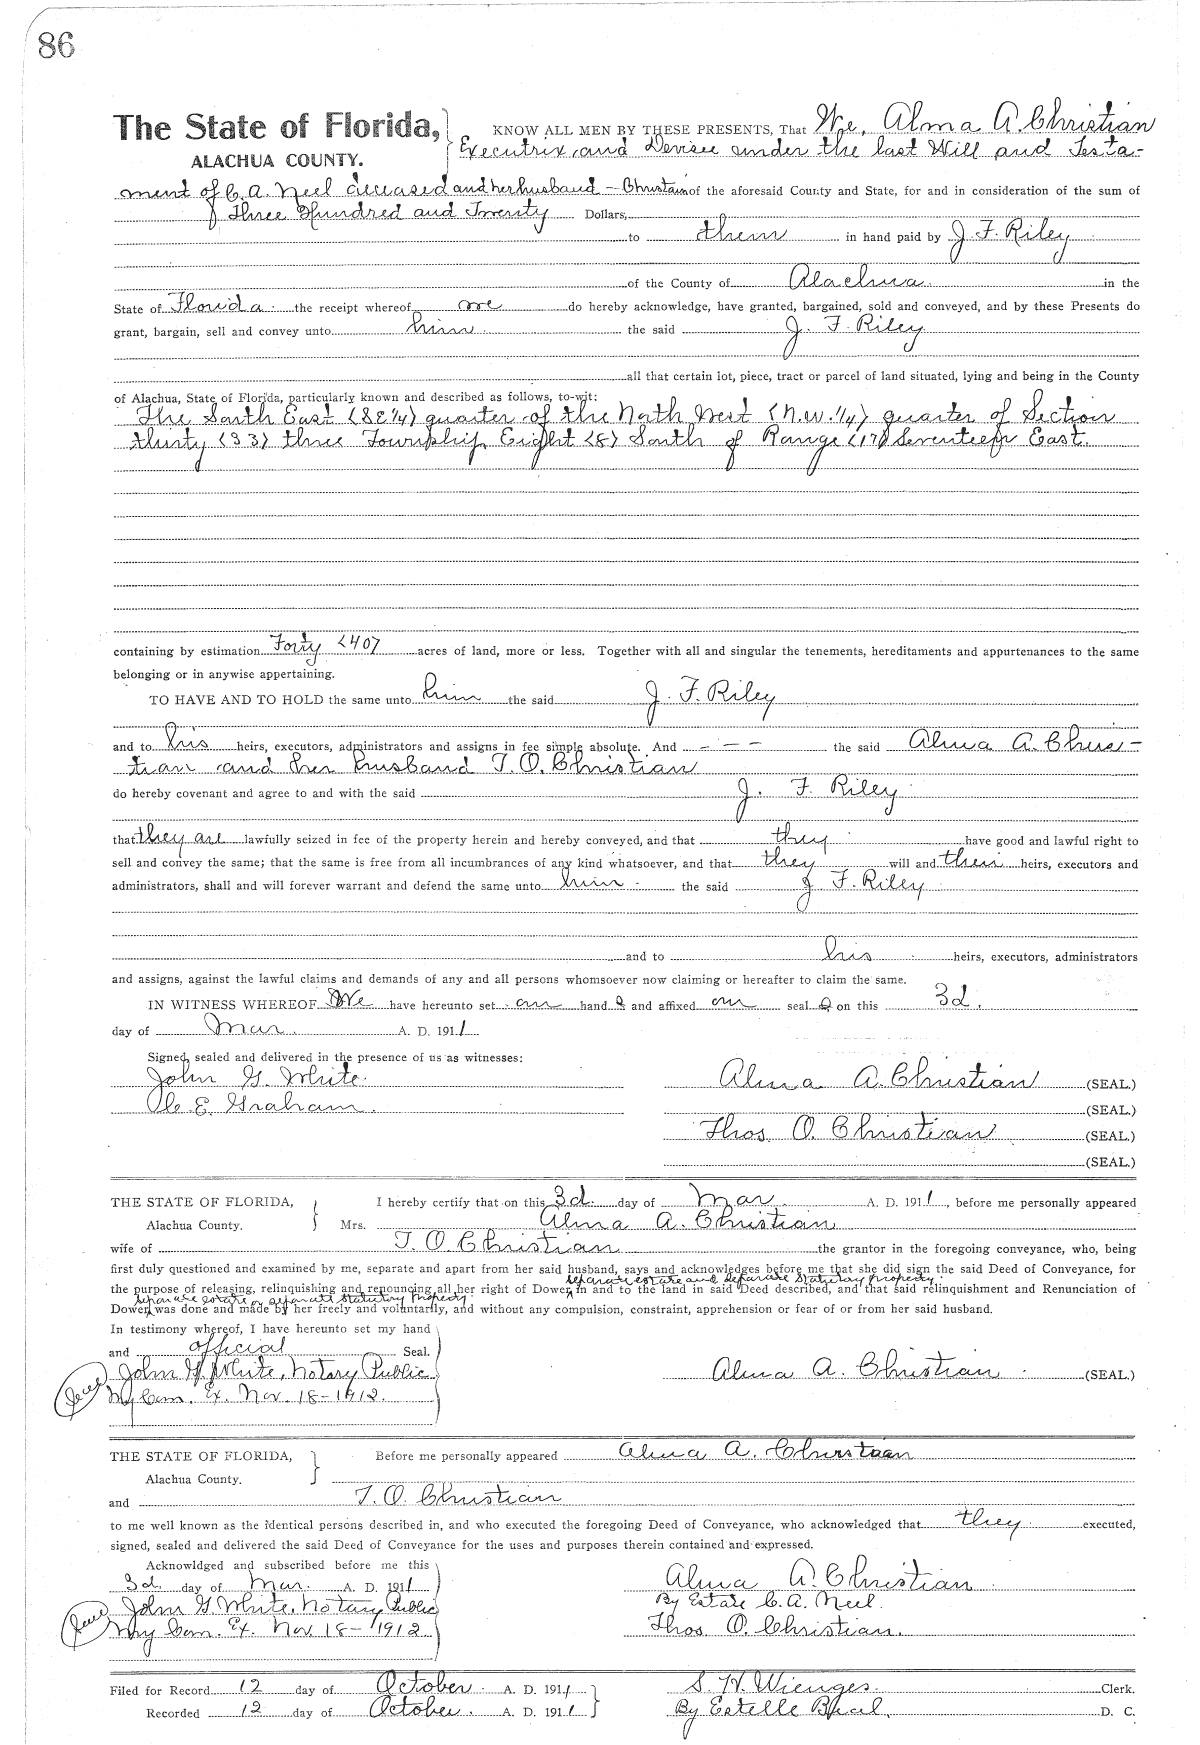 86
The State of Florida, KNOW ALL MEN BY THESE PRESENTS, That We, Alma A. Christian
ALACHUA COUNTY. Executrix and Devisee under the last Will and Testa-
ment of C. A. Neel deceased and her husband – Christain of the aforesaid County and State, for and in consideration of the sum of
Three Hundred and Twenty Dollars,
to them in hand paid by J. F. Riley
of the County of Alachua in the
State of Florida the receipt whereof we do hereby acknowledge, have granted, bargained, sold and conveyed, and by these Presents do
grant, bargain, sell and convey unto him the said J. F. Riley
all that certain lot, piece, tract or parcel of land situated, lying and being in the County
of Alachua, State of Florida, particularly known and described as follows, to-wit:
The South East (SE 1/4) quarter of the North West (N.W. 1/4) quarter of Section
thirty (33) three Township Eight (8) South of Range (17) Seventeen East.
containing by estimation Forty (40) acres of land, more or less. Together with all and singular the tenements, hereditaments and appurtenances to the same
belonging or in anywise appertaining.
TO HAVE AND TO HOLD the same unto him the said J. F. Riley
and to his heirs, executors, administrators and assigns in fee simple absolute. And – – – the said Alma A. Chris-
tian and her husband T. O. Christian
do hereby covenant and agree to and with the said J. F. Riley
that they are lawfully seized in fee of the property herein and hereby conveyed, and that they have good and lawful right to
sell and convey the same; that the same is free from all incumbrances of any kind whatsoever, and that they will and their heirs, executors and
administrators, shall and will forever warrant and defend the same unto him the said J F. Riley
and to his heirs, executors, administrators
and assigns, against the lawful claims and demands of any and all persons whomsoever now claiming or hereafter to claim the same.
IN WITNESS WHEREOF We have hereunto set our hand s and affixed our seal s on this 3d.
day of Mar. A. D. 1911
Signed, sealed and delivered in the presence of us as witnesses:
John G. White. Alma A. Christian (SEAL.)
C. E. Graham. (SEAL.)
Thos. O. Christian (SEAL.)
(SEAL.)
THE STATE OF FLORIDA, I hereby certify that on this 3d. day of Mar. A. D. 1911, before me personally appeared
Alachua County. Mrs. Alma A. Christian
wife of T. O Christian the grantor in the foregoing conveyance, who, being
first duly questioned and examined by me, separate and apart from her said husband, says and acknowledges before me that she did sign the said Deed of Conveyance, for
separate estate and separate statutory property.
the purpose of releasing, relinquishing and renouncing all her right of Dower, in and to the land in said Deed described, and that said relinquishment and Renunciation of
separate estate separate statutory property
Dower, was done and made by her freely and voluntarily, and without any compulsion, constraint, apprehension or fear of or from her said husband.
In testimony whereof, I have hereunto set my hand
and official Seal.
John G. White, Notary Public Alma A. Christian (SEAL.)
My Com. Ex. Nov. 18-1912.
THE STATE OF FLORIDA, Before me personally appeared Alma A. Christian
Alachua County.
and T. O. Christian
to me well known as the identical persons described in, and who executed the foregoing Deed of Conveyance, who acknowledged that they executed,
signed, sealed and delivered the said Deed of Conveyance for the uses and purposes therein contained and expressed.
Acknowldged and subscribed before me this
3d. day of Mar. A. D. 1911 Alma A. Christian
John G. White, Notary Public By Estate C. A. Neel.
My Com. Ex. Nov. 18-1912 Thos. O. Christian.
Filed for Record 12 day of October. A. D. 1911 S. H. Wienges. Clerk.
Recorded 12 day of October. A. D. 1911 By Estelle Beal. D. C.